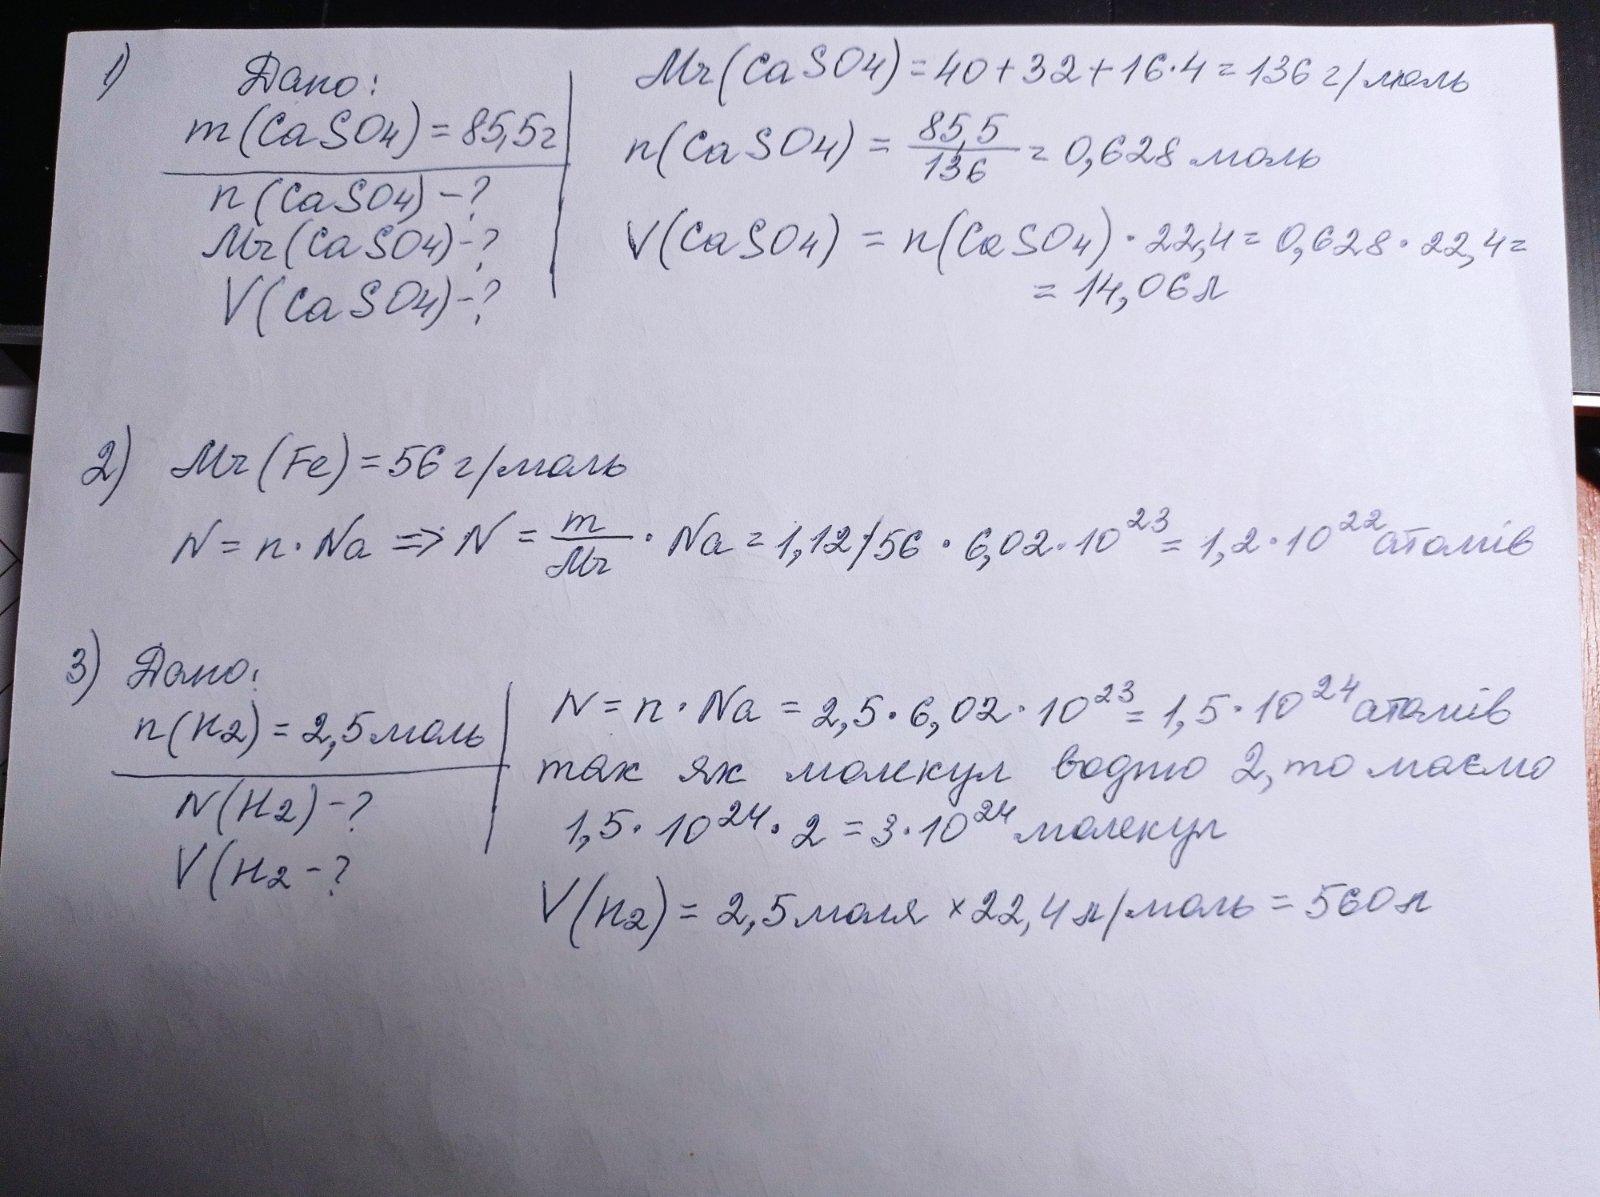 1)
Дано:
m(CaSO4) = 85,5г
n(CaSO4) - ?
Mr(CaSO4) - ?
V(CaSO4) - ?
Mr(CaSO4) = 40 + 32 + 16 · 4 = 136 г/моль
n(CaSO4) = 85,5/136 = 0,628 моль
V(CaSO4) = n(CaSO4) · 22,4 = 0,628 · 22,4 =
= 14,06л
2) Mr(Fe) = 56 г/моль
N = n · Na => N = m/Mr · Na = 1,12/56 · 6,02 · 10²³ = 1,2 · 10²² атомів
3) Дано:
n(H2) = 2,5 моль
N(H2) - ?
V(H2 - ?
N = n · Na = 2,5 · 6,02 · 10²³ = 1,5 · 10²⁴ атомів
так як молекул водню 2, то маємо
1,5 · 10²⁴ · 2 = 3 · 10²⁴ молекул
V(H2) = 2,5 моля × 22,4 л/моль = 560 л